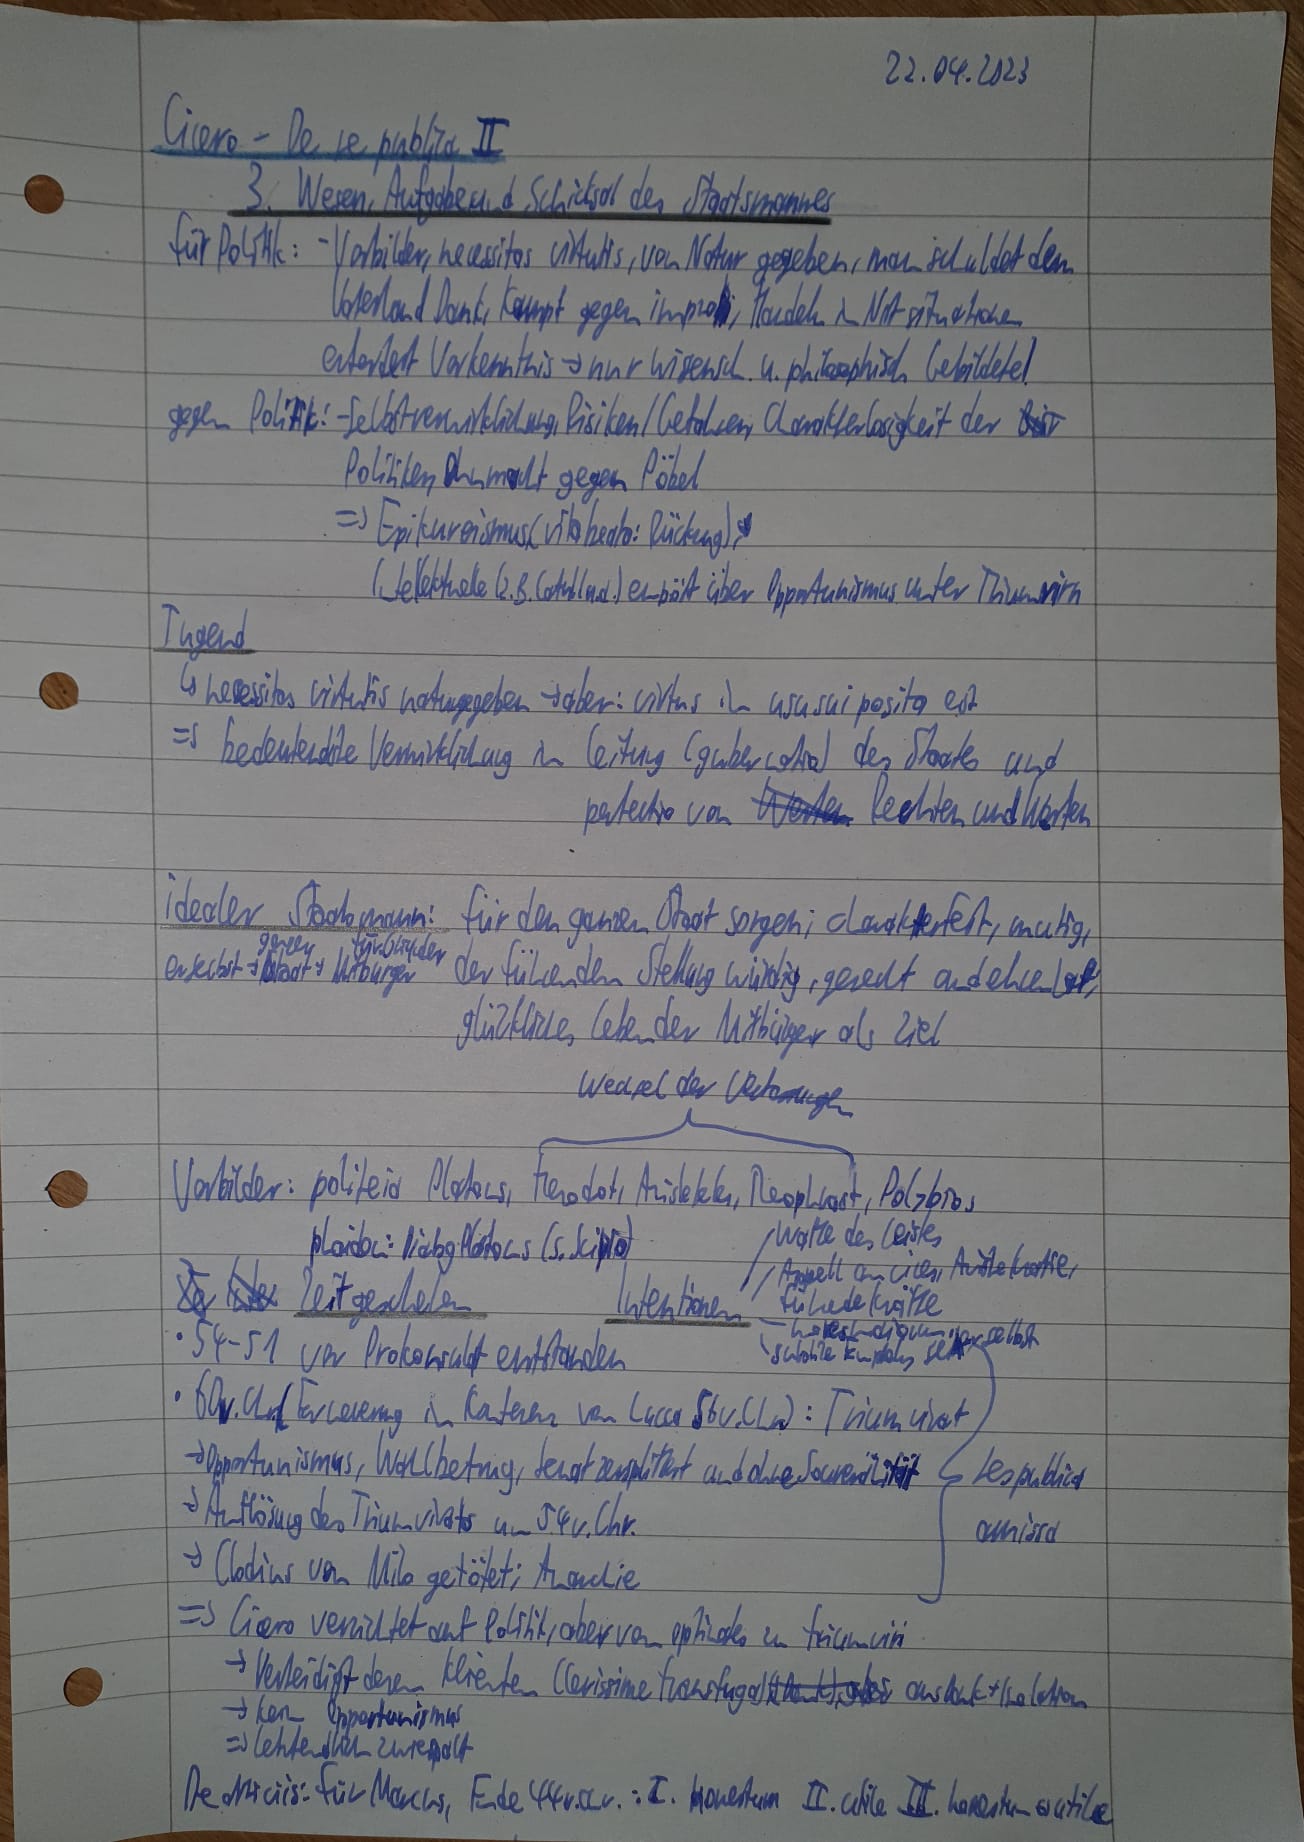 22.04.2023
Cicero - De re publica II
3. Wesen, Aufgabe und Schicksal des Staatsmannes
für Politik: - Vorbilder, necessitas virtutis, von Natur gegeben, man schuldet dem
Vaterland Dank, Kampf gegen improbi, Handeln in Notsituationen
erfordert Vorkenntnis → nur wissensch. u. philosophisch Gebildete!
gegen Politik: - Selbstverwirklichung, Risiken/Gefahren, Charakterlosigkeit der
Politiker, Ohnmacht gegen Pöbel
=> Epikureismus (vita beata: Rückzug),
Intellektuelle (z.B. Catull u.a.) empört über Opportunismus unter Triumvirn
Tugend
↳ necessitas virtutis naturgegeben → aber: virtus in usu sui posita est
=> bedeutendste Verwirklichung in Leitung (gubernatio) des Staates und
perfectio von Rechten und Werten
idealer Staatsmann: für den ganzen Staat sorgen; charakterfest, mutig,
er selbst → Staat → Mitbürger der führenden Stellung würdig, gerecht und ehrenhaft,
glückliches Leben der Mitbürger als Ziel
Wechsel der Verfassungen
Vorbilder: politeia Platons, Herodot, Aristoteles, Theophrast, Polybios,
phaidon: Dialog Platons (s. Scipio)
Waffe des Geistes
Appell an cives, Aristokratie,
Zeitgeschehen Intentionen führende Kräfte
• 54-51 vor Prokonsulat entstanden
• 60 v. Chr. (Erneuerung in Konferenz von Lucca 56 v. Chr.): Triumvirat
→ Opportunismus, Wahlbetrug, Senat zersplittert und ohne Souveränität
res publica
→ Auflösung des Triumvirats um 54 v. Chr.
amissa
→ Clodius von Milo getötet; Anarchie
=> Cicero verzichtet auf Politik, aber von optimates zu triumviri
→ Verteidigt deren Klienten (levissime transfuga) aus Dank + Isolation
→ kein Opportunismus
=> letztendlich zwiespalt
De officiis: für Marcus, Ende 44 v. Chr.: I. honestum II. utile III. honestum vs utile